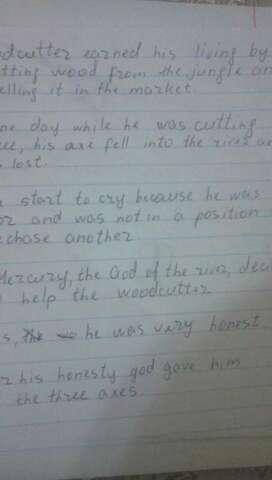 dcutter earned his living by
tting wood from the jungle an
elling it in the market.
ne day while he was cutting
ee, his axe fell into the river an
s lost.
start to cry because he was
or and was not in a position
rchase another
Mercury, the God of the river, deci
help the woodcutter
s, he was very honest
r his honesty god gave him
the three axes.